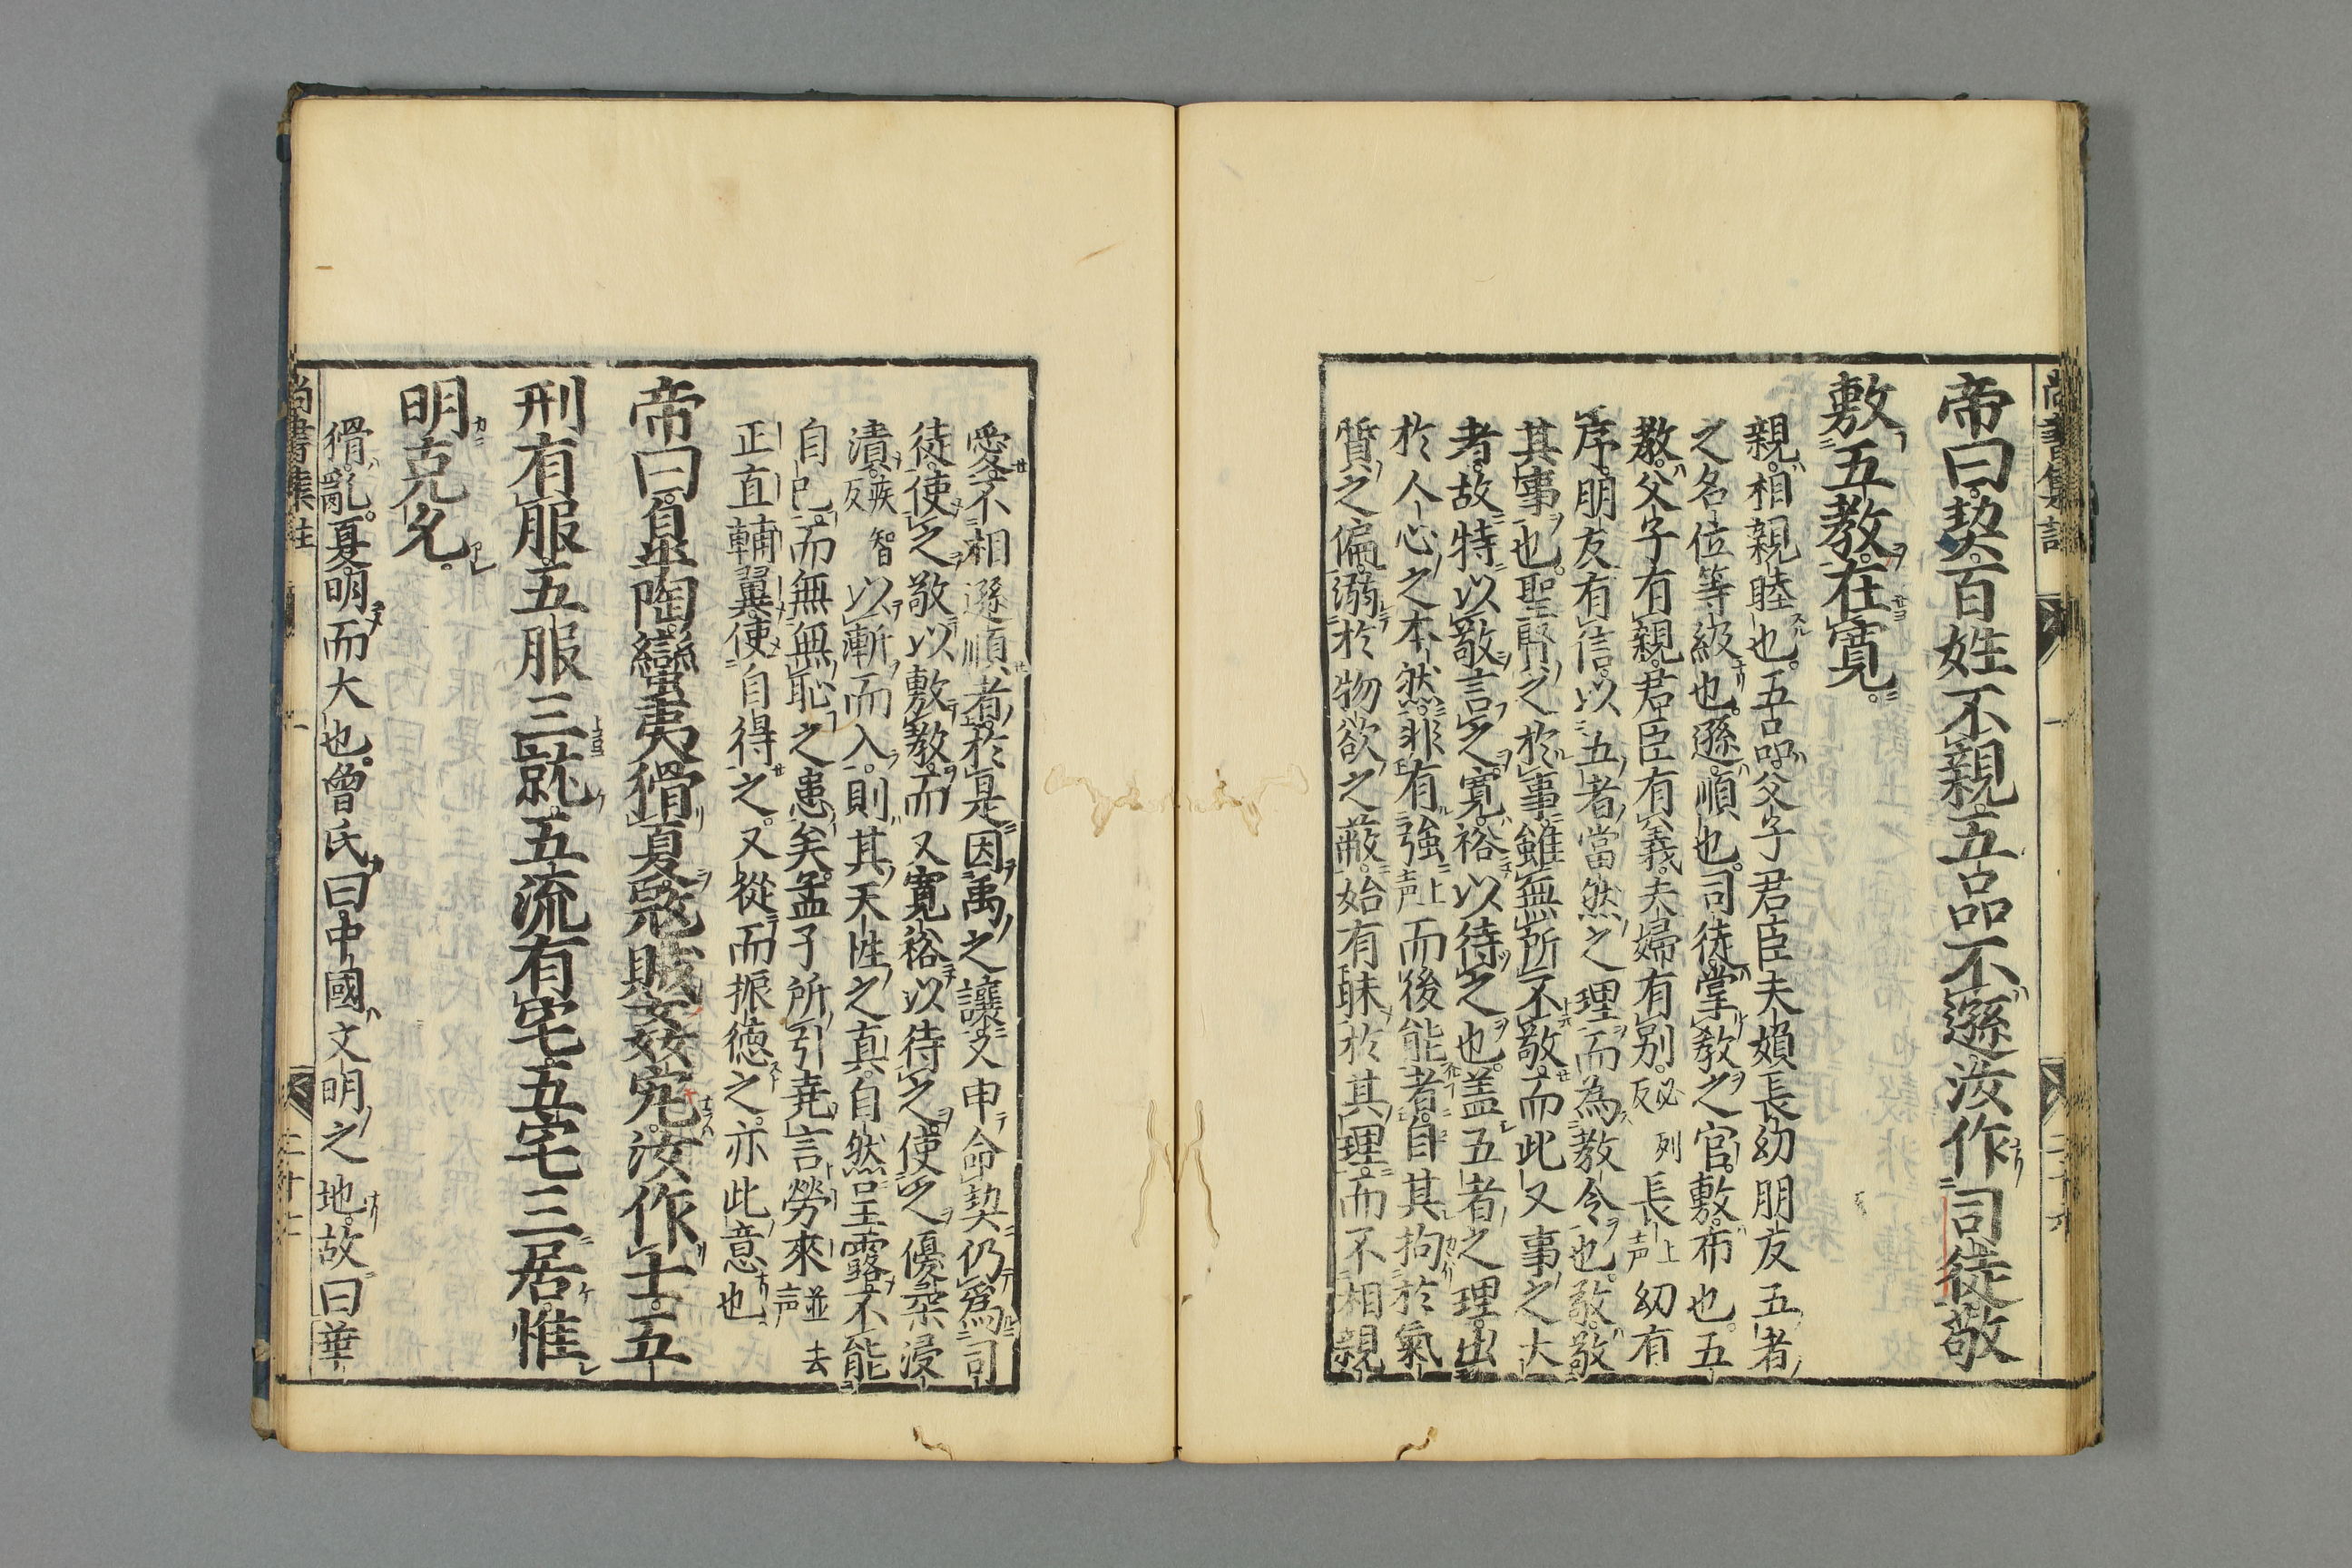 帝曰契百姓不親五品不遜汝作司徒敬
敷五教在寛
親相親睦也五品父子君臣夫婦長幼朋友五者
之名位等級也遜順也司徒掌教之官敷布也五
教父子有親君臣有義夫婦有別必列反長上声幼有
序朋友有信以五者當然之理而為教令也敬敬
其事也聖賢之於事雖無所不敬而此又事之大
者故特以敬言之寛裕以待之也盖五者之理出
於人心之本然非有強上声而後能者自其拘於氣
質之偏溺於物欲之蔽始有昧於其理而不相親
愛不相遜順者於是因禹之讓又申命契仍爲司
徒使之敬以敷教而又寛裕以待之使之優柔浸
漬疾智反以漸而入則其天性之真自然呈露不能
自已而無無恥之患矣孟子所引堯言勞來並去声
正直輔翼使自得之又從而振徳之亦此意也
帝曰皐陶蠻夷猾夏宼賊姦宄汝作士五
刑有服五服三就五流有宅五宅三居惟
明克允
猾亂夏明而大也曾氏曰中國文明之地故曰華
尚書集註 二十七